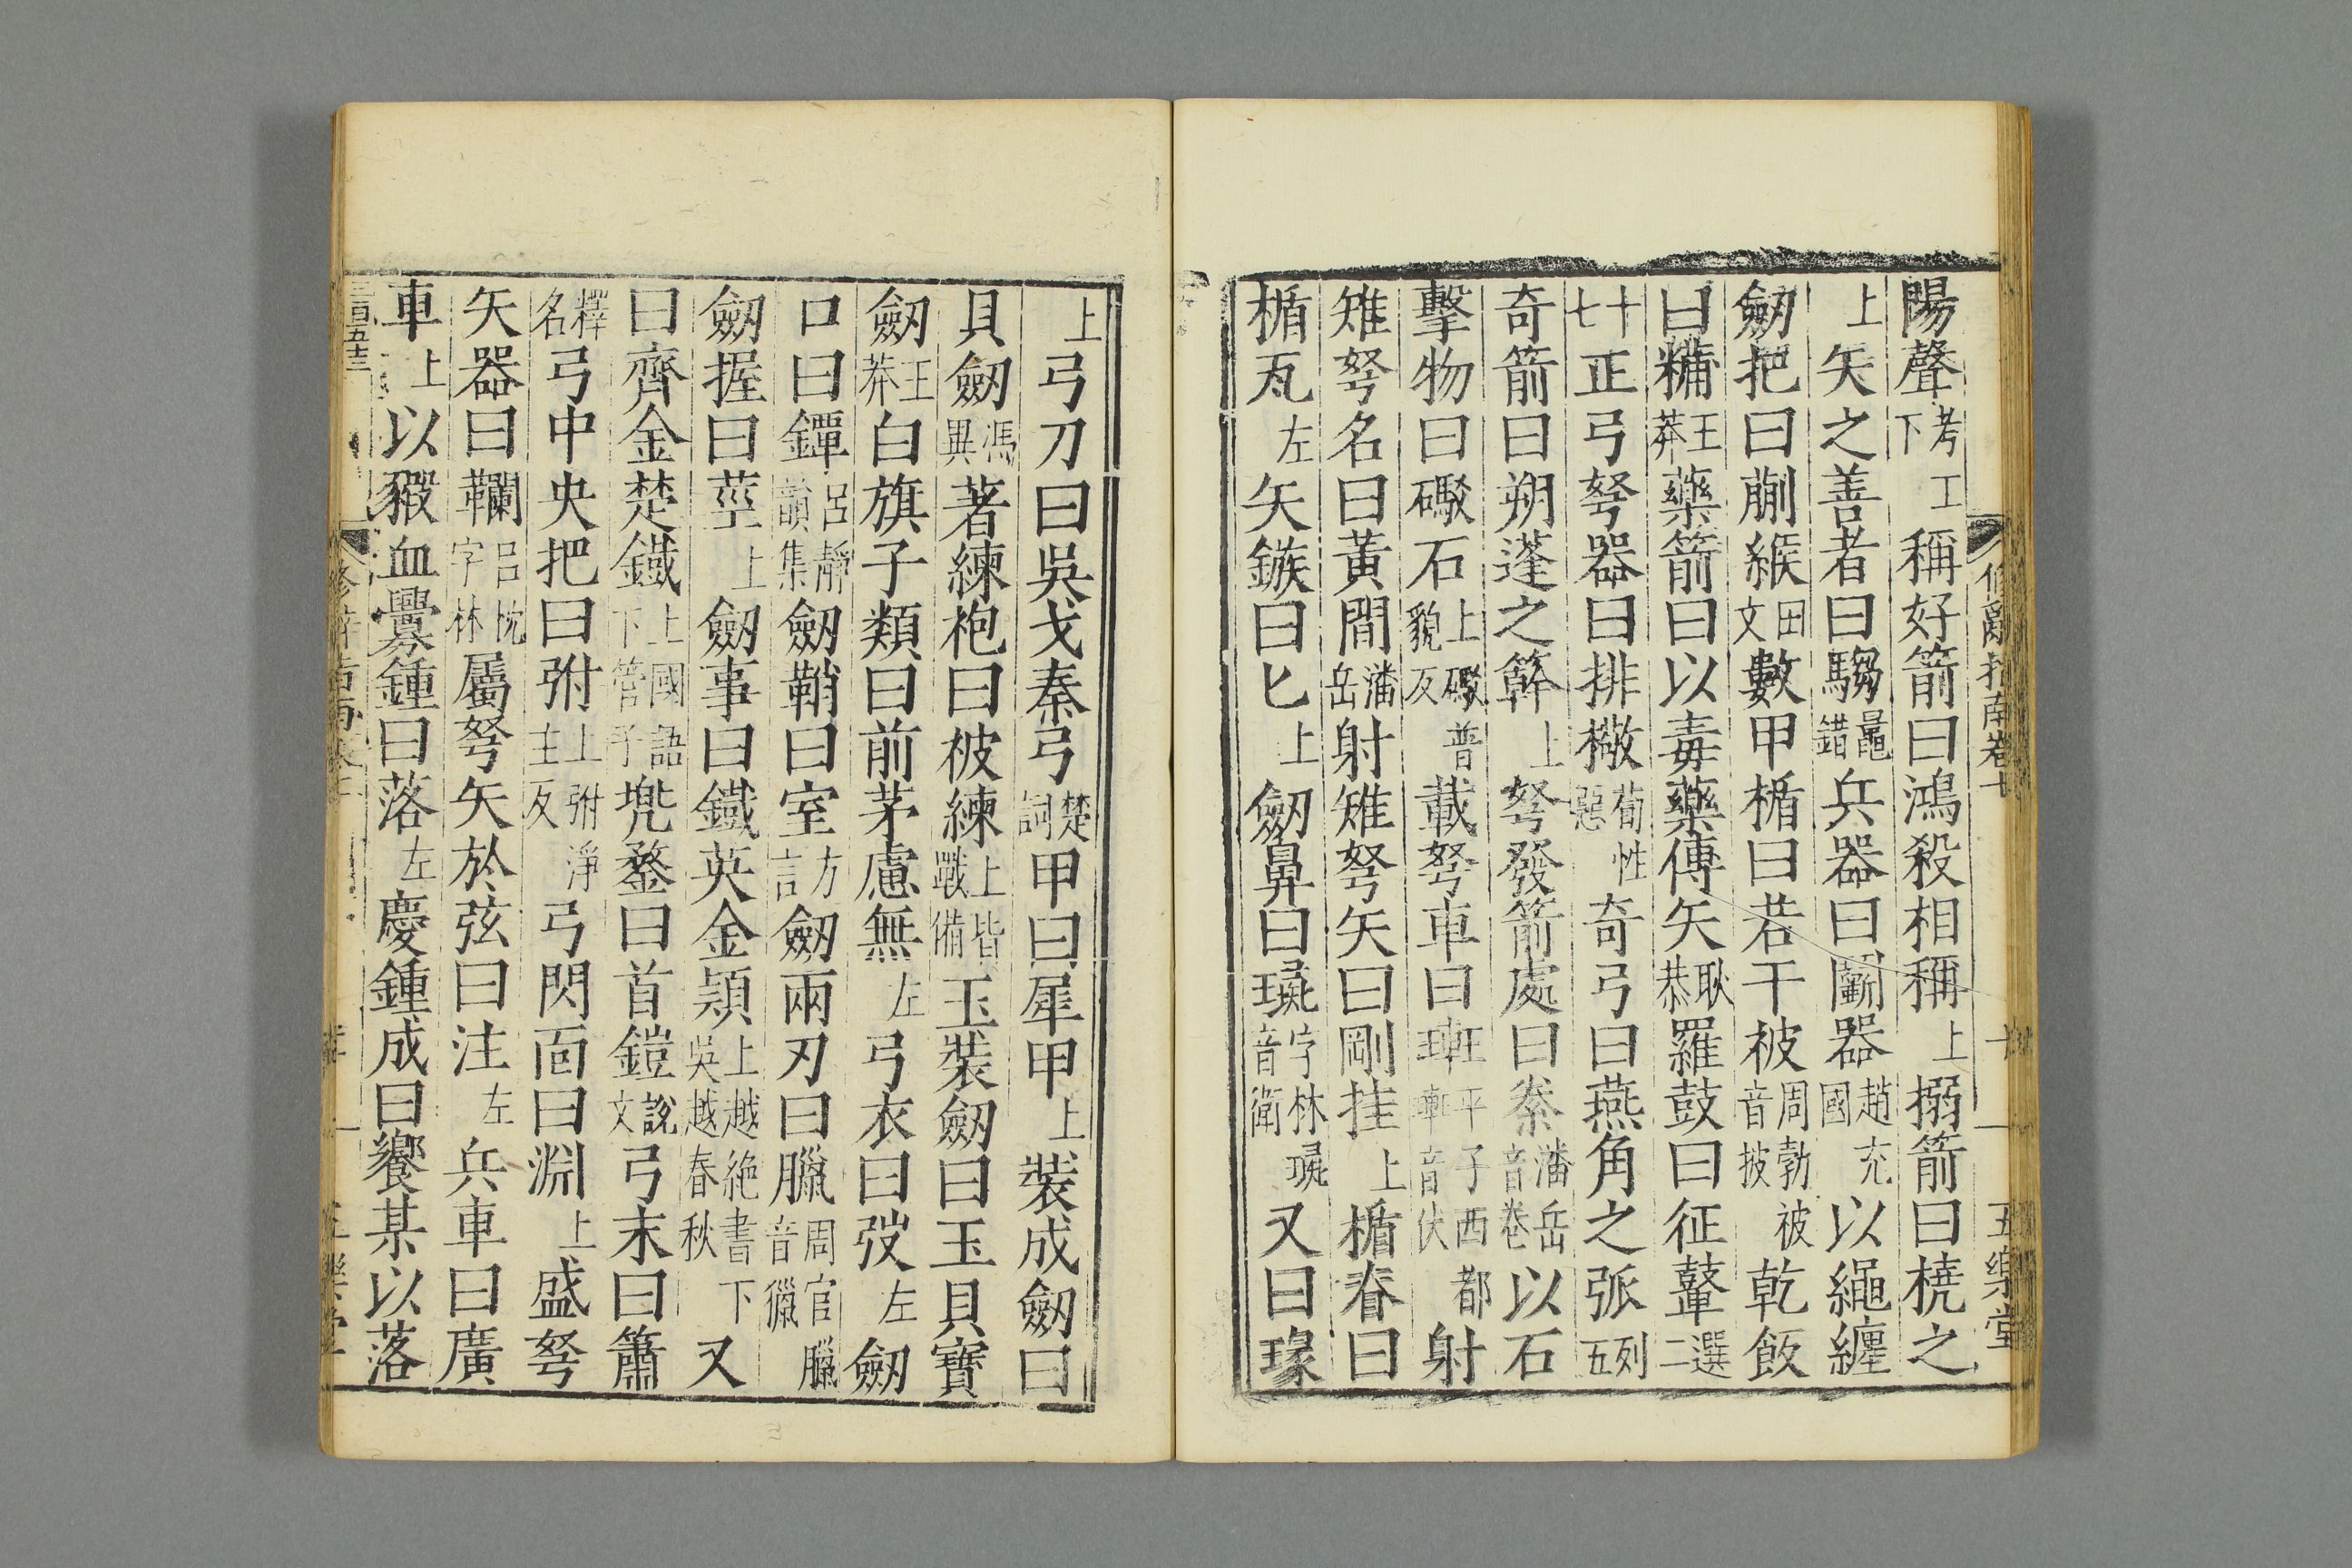 脩辭指南卷十
五樂堂
陽聲考工下稱好箭曰鴻殺相稱上搦箭曰橈之
上矢之善者曰騶鼂錯兵器曰鬭器趙充國以繩纏
劒把曰蒯緱田文數甲楯曰若干被周勃被音披乾飯
曰糒王莽藥箭曰以毒藥傅矢耿恭羅鼓曰征鼙選二
十七正弓弩器曰排檠荀性惡奇弓曰燕角之弧列五
奇箭曰朔蓬之簳上弩發箭處曰絭潘岳音卷以石
擊物曰礮石上礮普貌反載弩車曰䡙平子西都音伏射
雉弩名曰黃間潘岳射雉弩矢曰剛挂上楯脊曰
楯瓦左矢鏃曰匕上劒鼻曰璏字林璏音衛又曰瑑
上弓刀曰吳戈秦弓楚詞甲曰犀甲上裝成劒曰
具劒馮異著練袍曰被練上皆戰備玉裝劒曰玉具寶
劒王莽白旗子類曰前茅慮無左弓衣曰弢左劒
口曰鐔呂靜韻集劒鞘曰室方言劒兩刃曰臘周官臘音獵
劒握曰莖上劒事曰鐵英金潁上越絕書下吳越春秋又
曰齊金楚鐵上國語下管子兠鍪曰首鎧說文弓末曰簫
釋名弓中央把曰弣上弣淨主反弓閃面曰淵上盛弩
矢器曰韊呂忱字林屬弩矢於弦曰注左兵車曰廣
車上以豭血釁鍾曰落左慶鍾成曰饗某以落
三百五十三